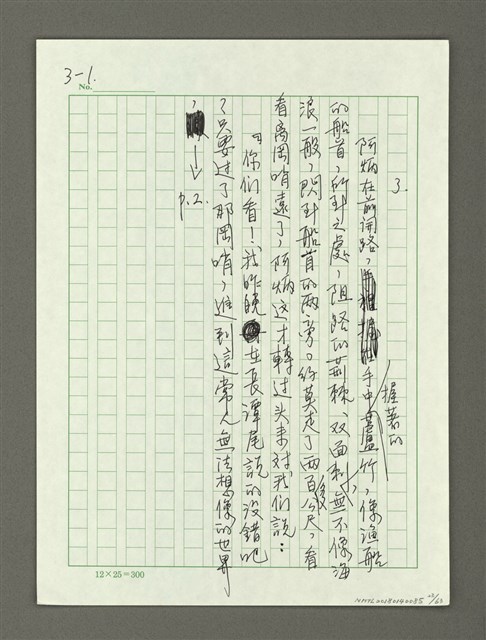 3-1.
No.
3.
阿炳在前開路，手中握著的蘆竹，像漁船
的船首，所到之處，阻路的荊棘、双面刺，無不像海
浪一般，閃到船首的兩旁。約莫走了兩百公尺，看
看离岡哨遠了，阿炳这才轉过头來对我们說：
『你们看！我昨晚在長潭尾說的沒錯吧
？只要过了那岡哨，進到這常人無法想像的世界
，
p.2.
12×25=300